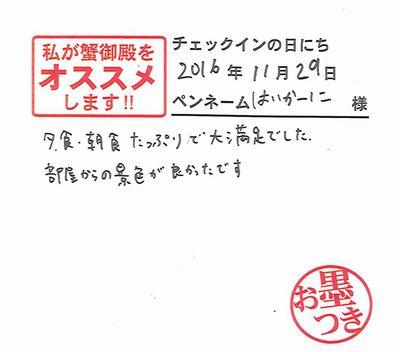 私が蟹御殿を
オススメ
します!!
チェックインの日にち
2016年11月29日
ペンネーム はいかーに 様
夕食・朝食 たっぷりで大満足でした.
部屋からの景色が良かったです
お墨つき